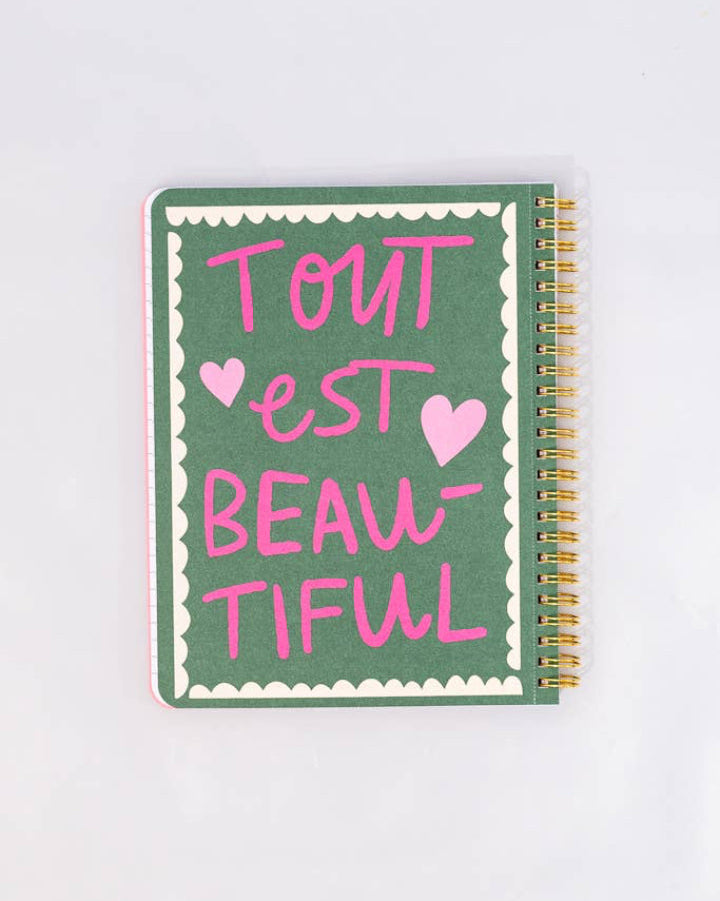 TOUT
eST
BEAU-
TIFUL